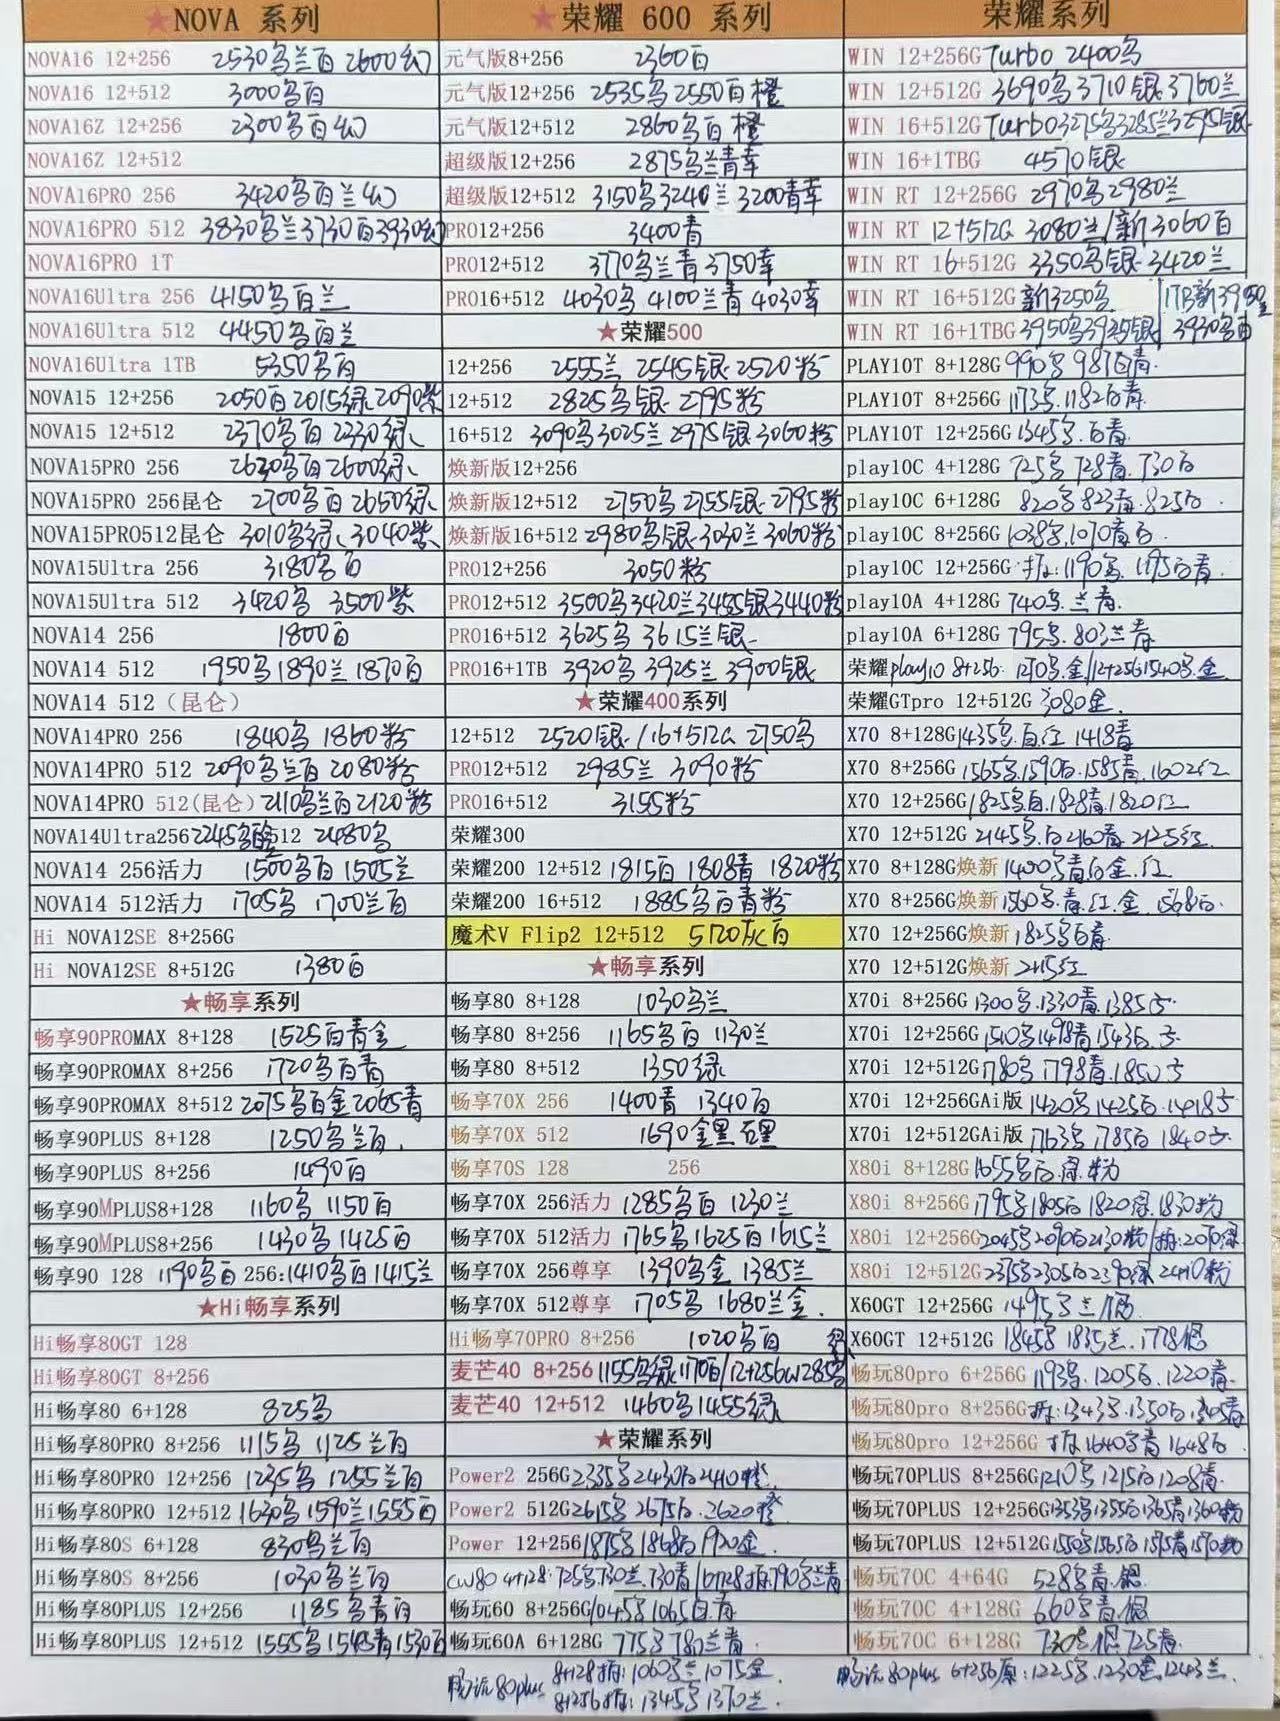 ★NOVA 系列
NOVA16 12+256 2530乌兰白 2600幻
NOVA16 12+512 3000乌白
NOVA16Z 12+256 2300乌白幻
NOVA16Z 12+512
NOVA16PRO 256 3420乌白兰幻
NOVA16PRO 512 3830乌兰3730白3930幻
NOVA16PRO 1T
NOVA16Ultra 256 4150乌白兰
NOVA16Ultra 512 4450乌白兰
NOVA16Ultra 1TB 5350乌白
NOVA15 12+256 2050白2015绿2090紫
NOVA15 12+512 2370乌白2330绿
NOVA15PRO 256 2630乌白2600绿
NOVA15PRO 256昆仑 2700乌白2650绿
NOVA15PRO512昆仑 3010乌绿 3040紫
NOVA15Ultra 256 3180乌白
NOVA15Ultra 512 3420乌 3500紫
NOVA14 256 1800白
NOVA14 512 1950乌1890兰1870白
NOVA14 512（昆仑）
NOVA14PRO 256 1840乌 1860粉
NOVA14PRO 512 2090乌兰白2080粉
NOVA14PRO 512(昆仑) 2110乌兰白2120粉
NOVA14Ultra256 2245乌 512 2480乌
NOVA14 256活力 1500乌白 1505兰
NOVA14 512活力 1705乌 1700兰白
Hi NOVA12SE 8+256G
Hi NOVA12SE 8+512G 1380白
★畅享系列
畅享90PROMAX 8+128 1525白青金
畅享90PROMAX 8+256 1720乌白青
畅享90PROMAX 8+512 2075乌白金2065青
畅享90PLUS 8+128 1250乌兰白
畅享90PLUS 8+256 1490白
畅享90MPLUS8+128 1160乌 1150白
畅享90MPLUS8+256 1430乌 1425白
畅享90 128 1190乌白 256:1410乌白1415兰
★Hi畅享系列
Hi畅享80GT 128
Hi畅享80GT 8+256
Hi畅享80 6+128 825乌
Hi畅享80PRO 8+256 1115乌 1125兰白
Hi畅享80PRO 12+256 1235乌 1255兰白
Hi畅享80PRO 12+512 1630乌1590兰1555白
Hi畅享80S 6+128 830乌兰白
Hi畅享80S 8+256 1030乌兰白
Hi畅享80PLUS 12+256 1185乌青白
Hi畅享80PLUS 12+512 1555乌1545青1530白
★荣耀 600 系列
元气版8+256 2360白
元气版12+256 2535乌2550白橙
元气版12+512 2860乌白橙
超级版12+256 2875乌兰青幸
超级版12+512 3150乌3240兰 3200青幸
PRO12+256 3400青
PRO12+512 3770乌兰青 3750幸
PRO16+512 4030乌 4100兰青 4030幸
★荣耀500
12+256 2555兰 2545银 2520粉
12+512 2825乌银 2795粉
16+512 3090乌3025兰2975银3060粉
焕新版12+256
焕新版12+512 2750乌2755银2795粉
焕新版16+512 2980乌银3030兰3060粉
PRO12+256 3050粉
PRO12+512 3500乌3420兰3455银3440粉
PRO16+512 3625乌3615兰银
PRO16+1TB 3920乌3925兰3900银
★荣耀400系列
12+512 2520银/16+512G 2750乌
PRO12+512 2985兰 3090粉
PRO16+512 3155粉
荣耀300
荣耀200 12+512 1815白1808青 1820粉
荣耀200 16+512 1885乌白青粉
魔术V Flip2 12+512 5120灰白
★畅享系列
畅享80 8+128 1030乌兰
畅享80 8+256 1165乌白1130兰
畅享80 8+512 1350绿
畅享70X 256 1400青 1340白
畅享70X 512 1690金黑
畅享70S 128 256
畅享70X 256活力 1285乌白1230兰
畅享70X 512活力 1765乌1625白1615兰
畅享70X 256尊享 1390乌金 1385兰
畅享70X 512尊享 1705乌 1680兰金
Hi畅享70PRO 8+256 1020乌白
麦芒40 8+256 1155乌绿1170白/12+256G
麦芒40 12+512 1460乌1455绿
★荣耀系列
Power2 256G2335乌2430白2410橙
Power2 512G2615乌2675白2620橙
Power 12+256 1875乌1868白1920金
CW80 4+128:725乌730兰730青/6+128拆:790乌兰青
畅玩60 8+256G1045乌1065白青
畅玩60A 6+128G 775乌780兰青
畅玩80plus 8+128拆:1060乌兰1075金
8+256拆:1345乌1370兰
荣耀系列
WIN 12+256G Turbo 2400乌
WIN 12+512G 3690乌3710银3760兰
WIN 16+512G Turbo3275乌3285兰3295银
WIN 16+1TBG 4570银
WIN RT 12+256G 2970乌2980兰
WIN RT 12+512G 3080兰/新3060白
WIN RT 16+512G 3350乌银3420兰
WIN RT 16+512G 新3250乌 1TB新
WIN RT 16+1TBG3950乌3935银 3930乌白
PLAY10T 8+128G 990乌 987白青
PLAY10T 8+256G 1173乌1182白青
PLAY10T 12+256G1345乌白青
play10C 4+128G 725乌728青730白
play10C 6+128G 820乌823青825白
play10C 8+256G 1038乌1070青白
play10C 12+256G 拆:1190乌1195白青
play10A 4+128G 740乌兰青
play10A 6+128G 795乌803兰青
荣耀play10 8+256 1210乌金/12+256 1540乌金
荣耀GTpro 12+512G 3080金
X70 8+128G1435乌白红 1418青
X70 8+256G1565乌1590白1585青1602红
X70 12+256G1825乌白1828青1820红
X70 12+512G 2145乌白2160青2125红
X70 8+128G焕新1400乌青白金红
X70 8+256G焕新1560乌青红金 1568白
X70 12+256G焕新1825乌白青
X70 12+512G焕新 2115红
X70i 8+256G1300乌1330青1385方
X70i 12+256G1510乌1498青1543白方
X70i 12+512G1780乌1798青1850方
X70i 12+256GAi版 1420乌1425白1418方
X70i 12+512GAi版 1763乌1785白1840方
X80i 8+128G1655乌白绿粉
X80i 8+256G1795乌1805白1820绿1830粉
X80i 12+256G2045乌2090白2130粉/拆:2070绿
X80i 12+512G2375乌2305白2390绿2410粉
X60GT 12+256G 1495乌兰银
X60GT 12+512G 1845乌1835兰1778银
畅玩80pro 6+256G 1193乌1205白1220青
畅玩80pro 8+256G拆:1343乌1350白1305青
畅玩80pro 12+256G 拆1640乌青1648白
畅玩70PLUS 8+256G1210乌1215白1208青
畅玩70PLUS 12+256G1353乌1355白1365青1360粉
畅玩70PLUS 12+512G1550乌1565白1575青1570粉
畅玩70C 4+64G 528乌青银
畅玩70C 4+128G 660乌青银
畅玩70C 6+128G 730乌银725青
畅玩80plus 6+256原:1225乌1230金1243兰